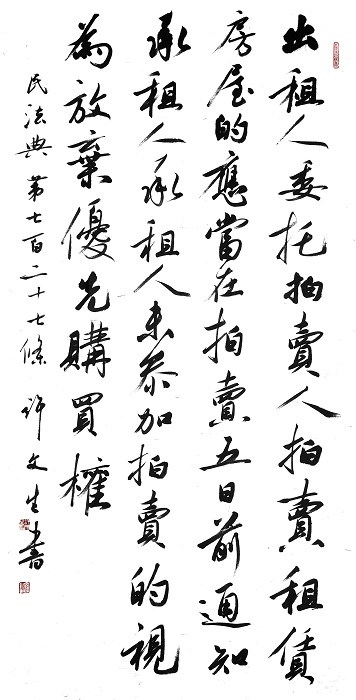 出租人委托拍賣人拍賣租賃
房屋的應當在拍賣五日前通知
承租人承租人未參加拍賣的視
為放棄優先購買權
民法典第七百二十七條 許文生書